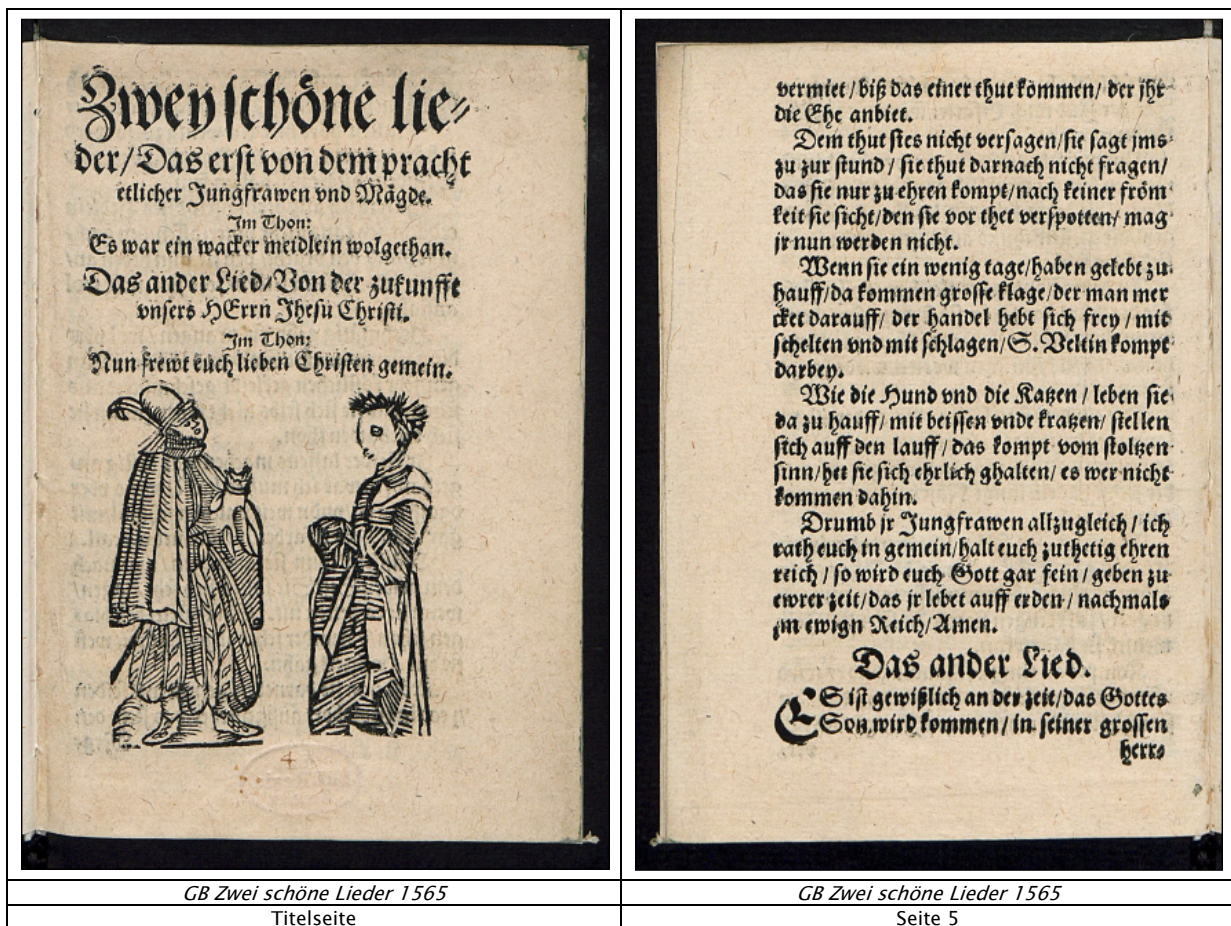 Zwey schöne lie⸗
der/ Das erst von dem pracht
etlicher Jungfrawen vnd Mägde.
Im Thon:
Es war ein wacker meidlein wolgethan.
Das ander Lied/ Von der zukunfft
vnsers HErrn Jhesu Christi.
Im Thon:
Nun frewt euch lieben Christen gemein.
4
GB Zwei schöne Lieder 1565
Titelseite
vermiet / biß das einer thut kommen/ der jhr
die Ehe anbiet.
Dem thut sies nicht versagen/ sie sagt jms
zu zur stund / sie thut darnach nicht fragen/
das sie nur zu ehren kompt/ nach keiner fröm
keit sie sicht/ den sie vor thet verspotten/ mag
jr nun werden nicht.
Wenn sie ein wenig tage/ haben gelebt zu
hauff/ da kommen grosse klage/ der man mer
cket darauff/ der handel hebt sich frey / mit
schelten vnd mit schlagen/ S. Veltin kompt
darbey.
Wie die Hund vnd die Katzen / leben sie
da zu hauff/ mit beissen vnde kratzen/ stellen
sich auff den lauff/ das kompt vom stoltzen
sinn/ het sie sich ehrlich ghalten/ es wer nicht
kommen dahin.
Drumb jr Jungfrawen allzugleich / ich
rath euch in gemein/ halt euch zuthetig ehren
reich / so wird euch Gott gar fein / geben zu
ewrer zeit/ das jr lebet auff erden / nachmals
jm ewign Reich/ Amen.
Das ander Lied.
ES ist gewißlich an der zeit/ das Gottes
Son wird kommen / in seiner grossen
herr⸗
GB Zwei schöne Lieder 1565
Seite 5